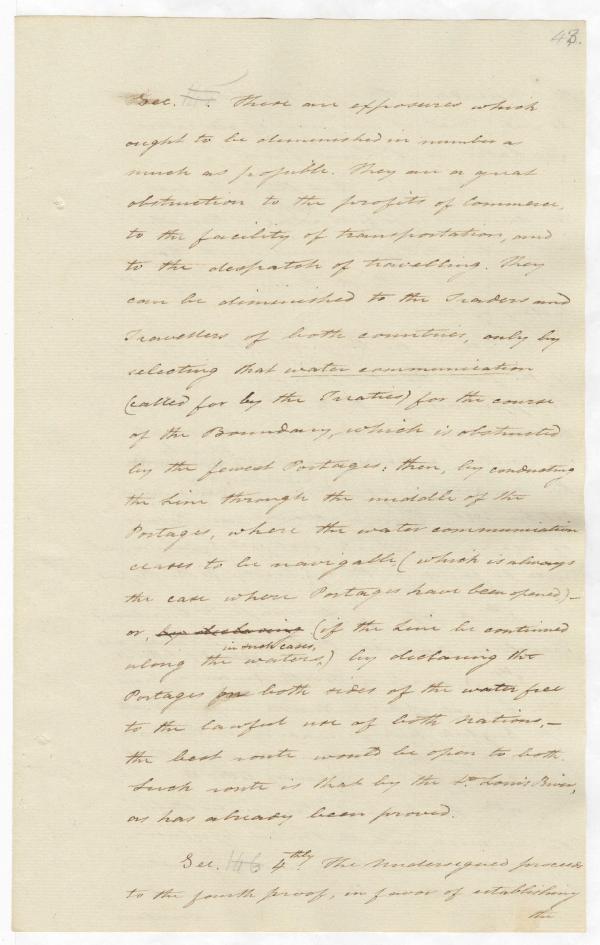 43.
Sec. These are exposures which
ought to be diminished in number as
much as possible. They are a great
obstruction to the profits of Commerce,
to the facility of transportation, and
to the despatch of travelling. They
can be diminished to the Traders and
Travellers of both countries, only by
selecting that water communication
(called for by the Treaties) for the course
of the Boundary, which is obstructed
by the fewest Portages: then, by conducting
the Line through the middle of the
Portages, where the water communication
ceases to be navigable (which is always
the case where Portages have been opened)—
or, by declaring (if the Line be continued
in such cases,
along the waters,) by declaring the
Portages on both sides of the water free
to the lawful use of both Nations,—
the best route would be open to both.
Such route is that by the St. Louis River,
as has already been proved.
Sec. 146 4thly. The Undersigned proceeds
to the fourth proof, in favor of establishing
the